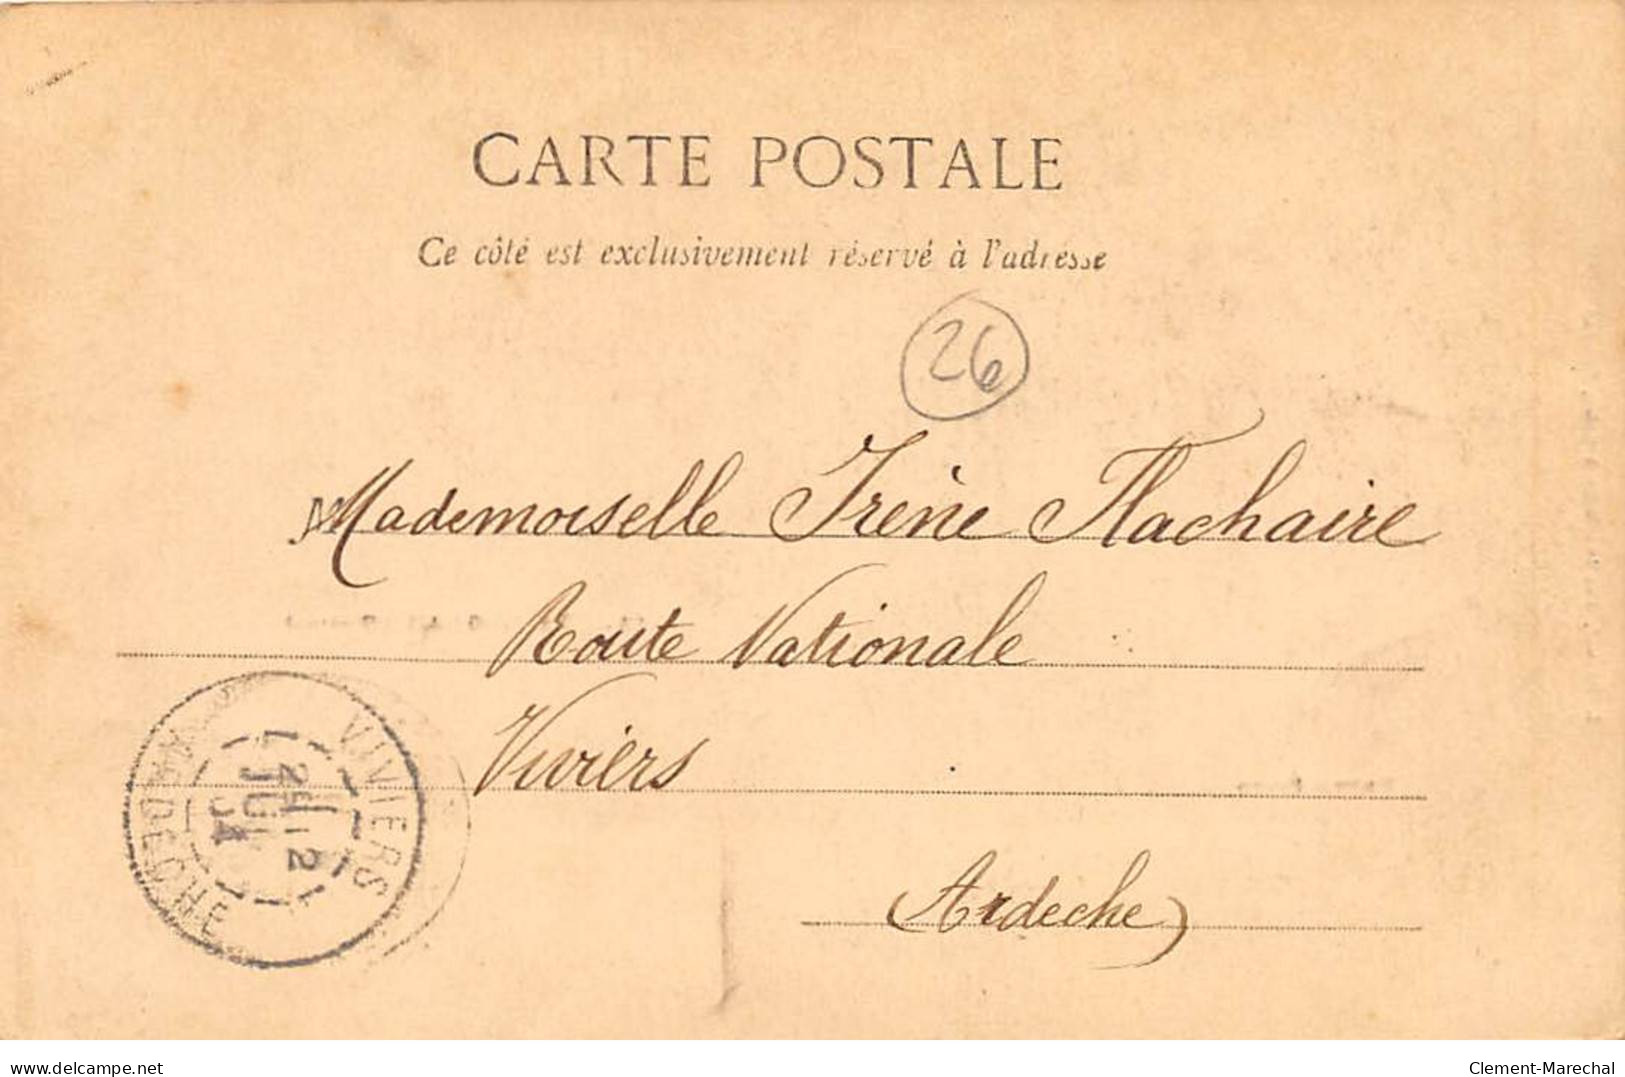 CARTE POSTALE
Ce côté est exclusivement réservé à l'adresse
26
Mademoiselle Irène Flachaire
Route Nationale
Viviers
(Ardèche)
VIVIERS
ARDECHE
2E
12
JUIL
04
delcampe.net
Clement-Marechal